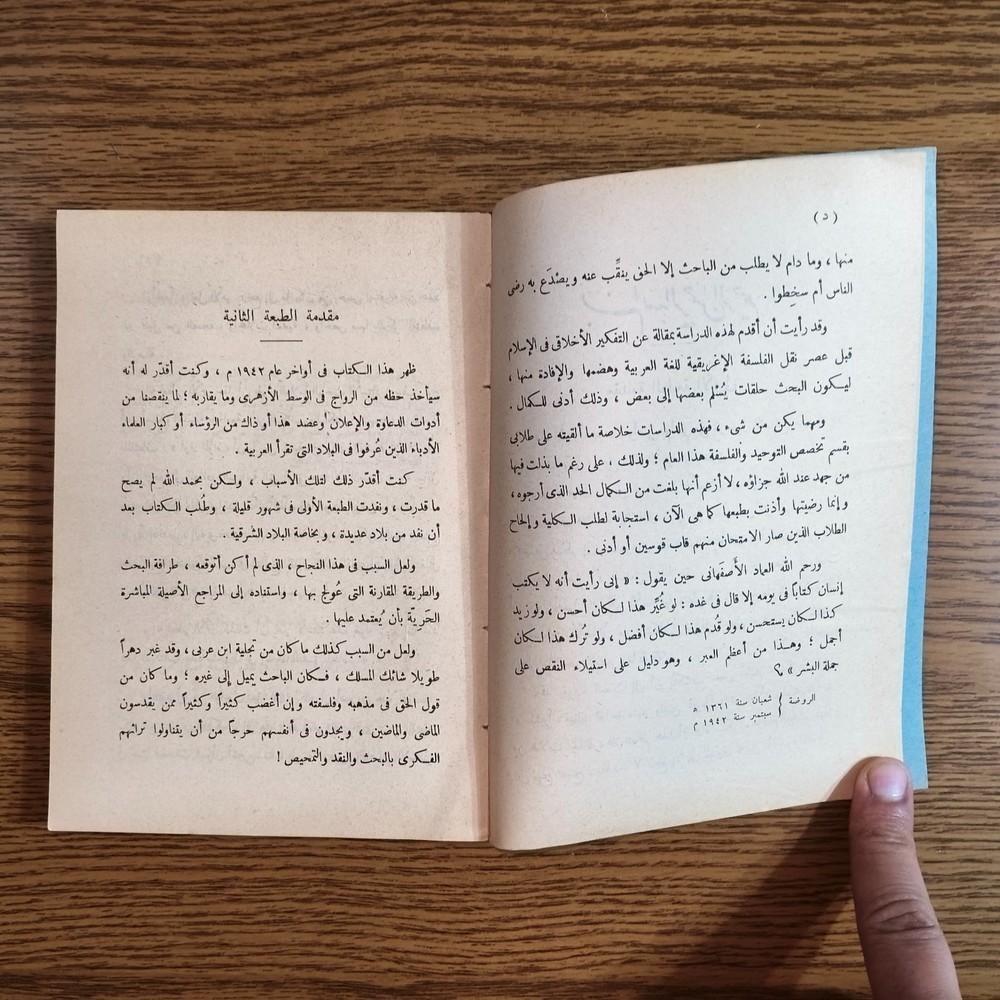 (د)
منها ، وما دام لا يطلب من الباحث إلا الحق ينقِّب عنه ويصْدَع به رضى
الناس أم سخِطوا .
وقد رأيت أن أقدم لهذه الدراسة بمقالة عن التفكير الأخلاقى فى الإسلام
قبل عصر نقل الفلسفة الإغريقية للغة العربية وهضمها والإفادة منها ،
ليكون البحث حلقات يُسْلم بعضها إلى بعض ، وذلك أدنى للكمال .
ومهما يكن من شىء ، فهذه الدراسات خلاصة ما ألقيته على طلابى
بقسم تخصص التوحيد والفلسفة هذا العام ؛ ولذلك ، على رغم ما بذلت فيها
من جهد عند الله جزاؤه ، لا أزعم أنها بلغت من الكمال الحد الذى أرجوه ،
وإنما رضيتها وأذنت بطبعها كما هى الآن ، استجابة لطلب الكلية وإلحاح
الطلاب الذين صار الامتحان منهم قاب قوسين أو أدنى .
ورحم الله العماد الأَصفَهانى حين يقول : « إنى رأيت أنه لا يكتب
إنسان كتابًا فى يومه إلا قال فى غده : لو غُيِّر هذا لكان أحسن ، ولو زيد
كذا لكان يستحسن ، ولو قُدم هذا لكان أفضل ، ولو تُرك هذا لكان
أجمل ؛ وهذا من أعظم العبر ، وهو دليل على استيلاء النقص على
جملة البشر »
الروضة { شعبان سنة ١٣٦١ ه
سبتمبر سنة ١٩٤٢ م
مقدمة الطبعة الثانية
ظهر هذا الكتاب فى أواخر عام ١٩٤٢ م ، وكنت أقدّر له أنه
سيأخذ حظه من الرواج فى الوسط الأزهرى وما يقاربه ؛ لما ينقصنا من
أدوات الدعاوة والإعلان وعضد هذا أو ذاك من الرؤساء أو كبار العلماء
الأدباء الذين عُرفوا فى البلاد التى تقرأ العربية .
كنت أقدّر ذلك لتلك الأسباب ، ولكن بحمد الله لم يصح
ما قدرت ، ونفدت الطبعة الأولى فى شهور قليلة ، وطُلب الكتاب بعد
أن نفد من بلاد عديدة ، وبخاصة البلاد الشرقية .
ولعل السبب فى هذا النجاح ، الذى لم أكن أتوقعه ، طرافة البحث
والطريقة المقارنة التى عُولج بها ، واستناده إلى المراجع الأصيلة المباشرة
الحَريّة بأن يُعتمد عليها .
ولعل من السبب كذلك ما كان من تجلية ابن عربى ، وقد غبر دهراً
طويلا شائك المسلك ، فكان الباحث يميل إلى غيره ؛ وما كان من
قول الحق فى مذهبه وفلسفته وإن أغضب كثيراً وكثيراً ممن يقدسون
الماضى والماضين ، ويجدون فى أنفسهم حرجاً من أن يتناولوا تراثهم
الفكرى بالبحث والنقد والتمحيص !